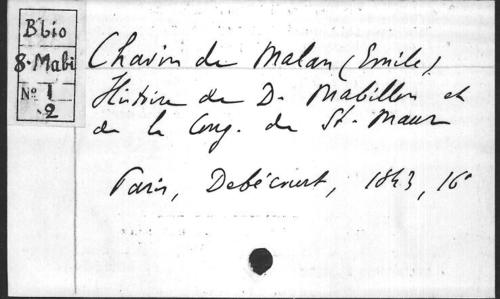 Bbio
8.Mabi
No 1
2
Chavin de Malan (Emile),
Histoire de D. Mabillon et
de la Cong. de St. Maur
Paris, Debécourt, 1843, 16°